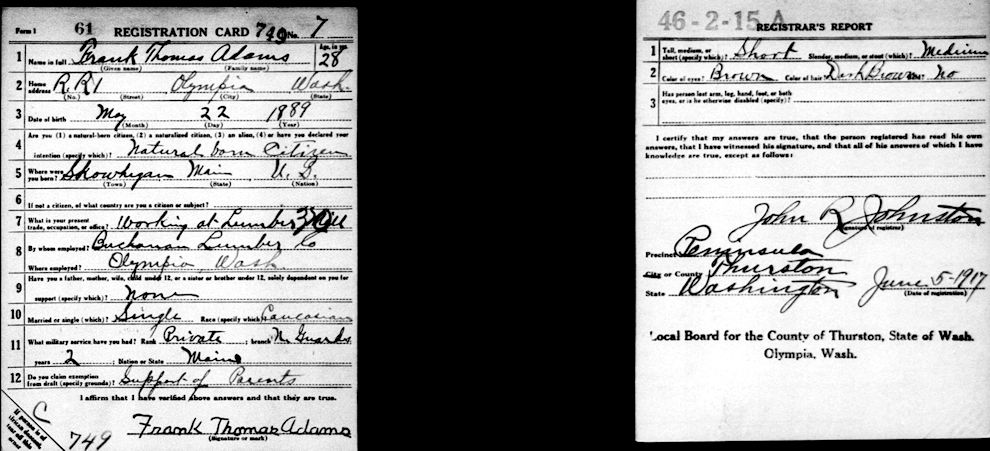 Form 1 61 REGISTRATION CARD 749 No. 7
1 Name in full Frank Thomas Adams Age, in yrs. 28
(Given name) (Family name)
2 Home address R.R.1 Olympia Wash.
(No.) (Street) (City) (State)
3 Date of birth May 22 1889
(Month) (Day) (Year)
Are you (1) a natural-born citizen, (2) a naturalized citizen, (3) an alien, (4) or have you declared your
4 intention (specify which)? Natural born Citizen
5 Where were you born? Skowhegan Main U. S.
(Town) (State) (Nation)
6 If not a citizen, of what country are you a citizen or subject?
7 What is your present trade, occupation, or office? Working at Lumber Mill
8 By whom employed? Buchanan Lumber Co
Where employed? Olympia, Wash
9 Have you a father, mother, wife, child under 12, or a sister or brother under 12, solely dependent on you for
support (specify which)? None
10 Married or single (which)? Single Race (specify which)? Caucasian
11 What military service have you had? Rank Private ; branch N. Guards
years 2 ; Nation or State Maine
12 Do you claim exemption from draft (specify grounds)? Support of Parents
I affirm that I have verified above answers and that they are true.
Frank Thomas Adams
(Signature or mark)
If person is of African descent, tear off this corner
C
749
46-2-15 A REGISTRAR'S REPORT
1 Tall, medium, or short (specify which)? Short Slender, medium, or stout (which)? Medium
2 Color of eyes? Brown Color of hair? Dark Brown No
3 Has person lost arm, leg, hand, foot, or both eyes, or is he otherwise disabled (specify)?
I certify that my answers are true, that the person registered has read his own
answers, that I have witnessed his signature, and that all of his answers of which I have
knowledge are true, except as follows:
John R Johnston
(Signature of registrar)
Precinct Peninsula
City or County Thurston
State Washington June 5-1917
(Date of registration)
Local Board for the County of Thurston, State of Wash.
Olympia, Wash.